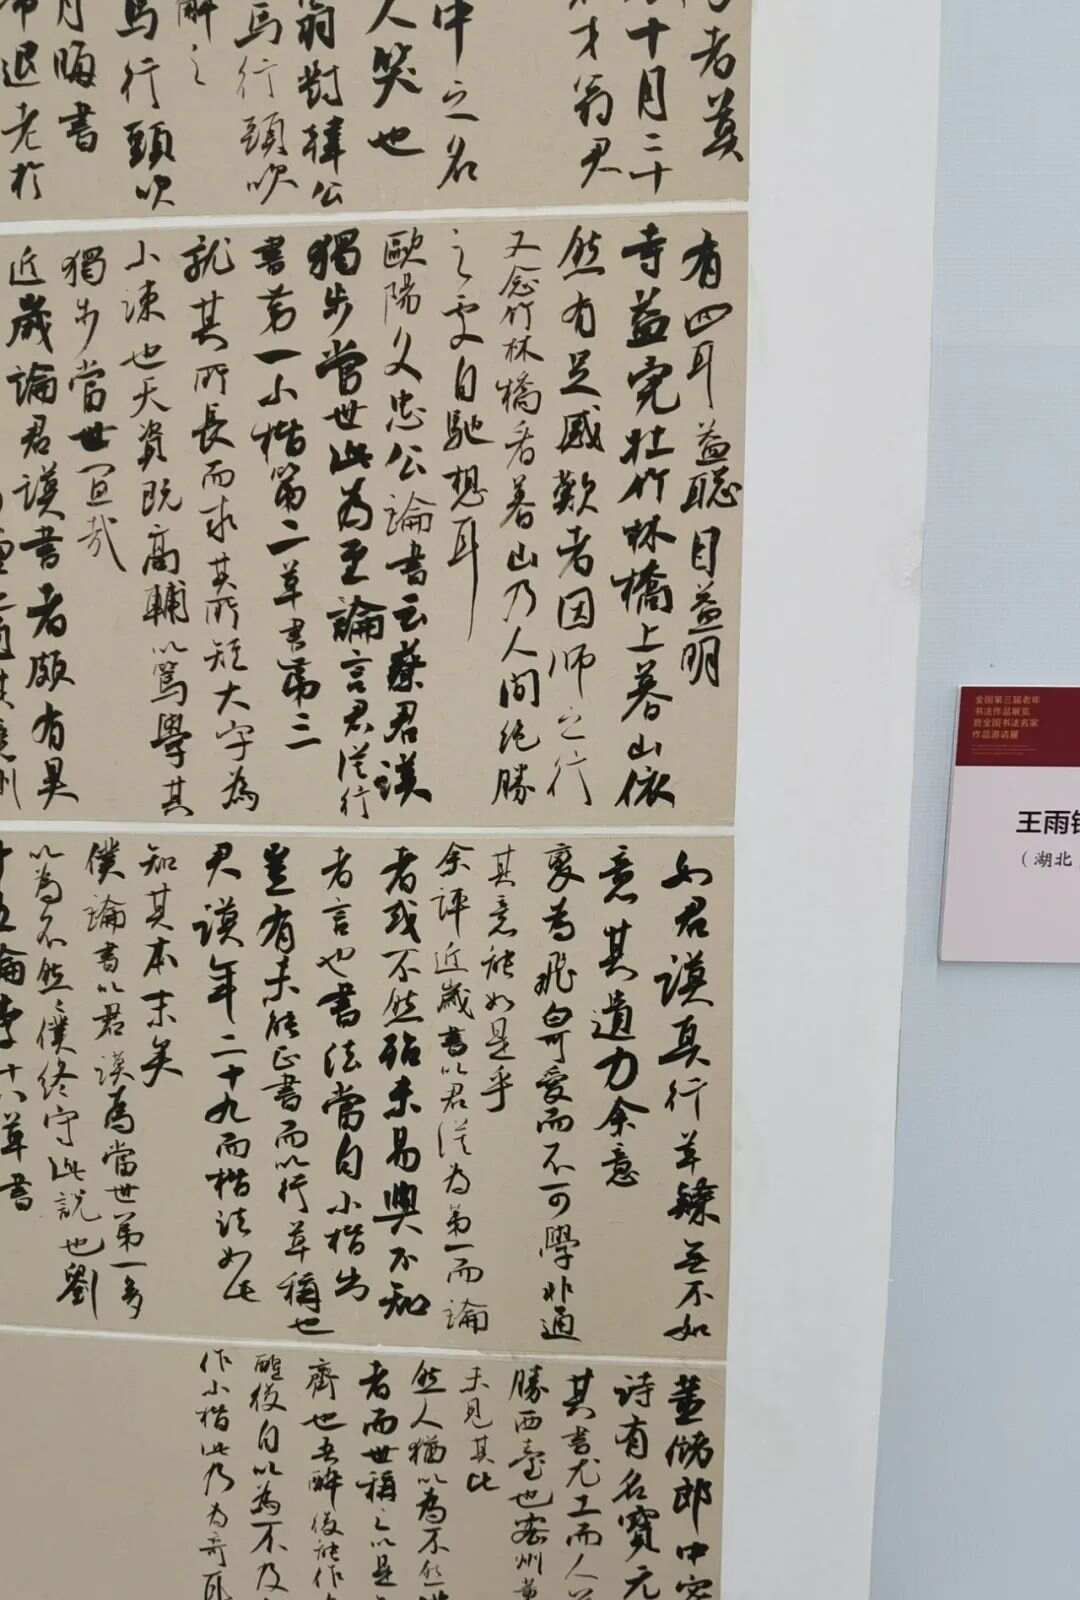 者莫
十月二十
才翁君
中之名
人笑也
翁對韓公
馬行頭吹
解之
馬行頭吹
月晦書
退老於
有四耳益聪目益明
寺益完壮竹林橋上暮山依
然有足感歎者因师之行
又念竹林橋看暮山乃人间绝勝
之处自馳想耳
歐陽文忠公論書云蔡君謨
獨步當世此為至論言君謨行
書第一小楷第二草書第三
就其所長而求其所短大字為
小疎也天資既高輔以篤學其
獨步當世宜哉
近歲論君謨書者頗有異
如君謨真行草隸無不如
意其遺力余意
變為飛白可愛而不可學非通
其意能如是乎
余評近歲書以君謨為第一而論
者或不然殆未易與不知
者言也書法當自小楷出
豈有未能正書而以行草稱也
君謨年二十九而楷法如此
知其本末矣
僕論書以君謨為當世第一多
以為不然僕終守此說也劉
十八草書
董儲郎中密
詩有名寶元
其書尤工而人
勝西臺也密州董
未見其比
然人猶以為不然
者而世稱之以是
齊也吾醉後能作
醒後自以為不及
作小楷此乃为奇耳
全国第三届老年
书法作品展览
暨全国书法名家
作品邀请展
王雨
（湖北